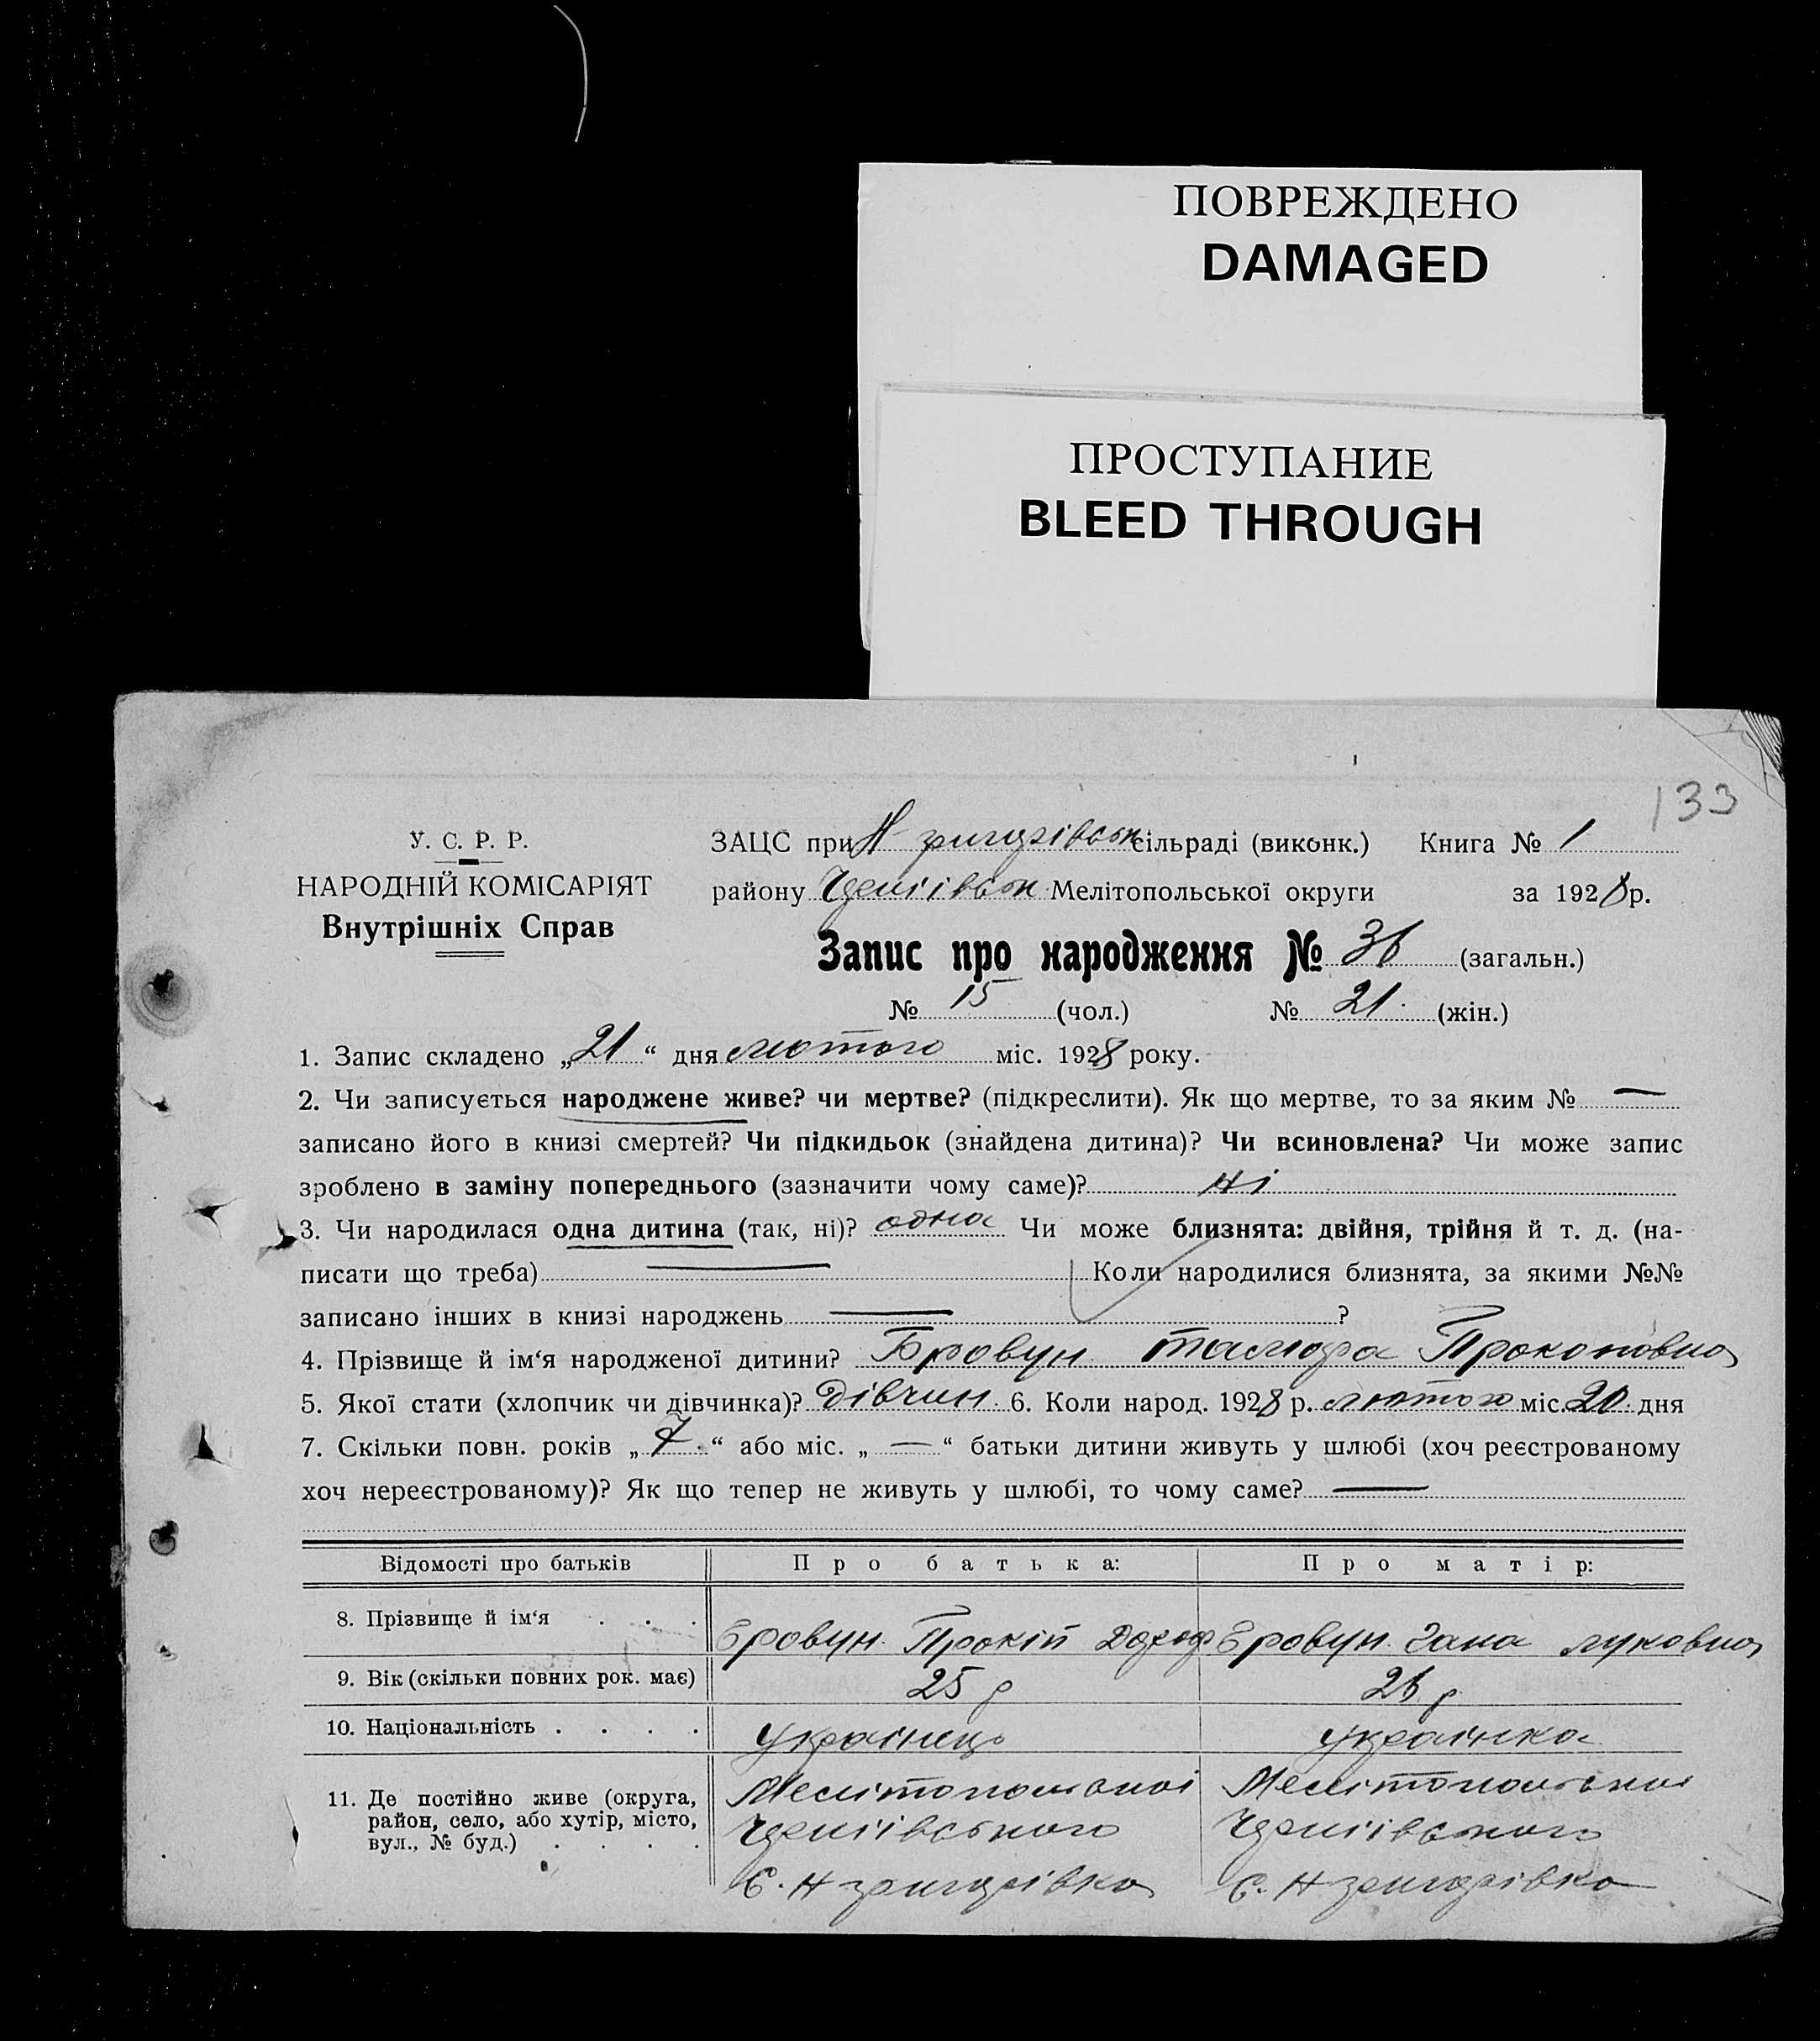 ПОВРЕЖДЕНО
DAMAGED
ПРОСТУПАНИЕ
BLEED THROUGH
133
У. С. Р. Р.
НАРОДНІЙ КОМІСАРІЯТ
Внутрішніх Справ
ЗАЦС при Н григорівськ сільраді (виконк.) Книга № 1
району Мелітопольської округи за 1928 р.
Запис про народження № 36 (загальн.)
№ 15 (чол.) № 21 (жін.)
1. Запис складено „21“ дня лютого міс. 1928 року.
2. Чи записується народжене живе? чи мертве? (підкреслити). Як що мертве, то за яким № —
записано його в книзі смертей? Чи підкидьок (знайдена дитина)? Чи всиновлена? Чи може запис
зроблено в заміну попереднього (зазначити чому саме)? Ні
3. Чи народилася одна дитина (так, ні)? одна Чи може близнята: двійня, трійня й т. д. (на-
писати що треба) — Коли народилися близнята, за якими №№
записано інших в книзі народжень — ?
4. Прізвище й ім‘я народженої дитини? Бровун Прокоповна
5. Якої стати (хлопчик чи дівчинка)? Дівчин. 6. Коли народ. 1928 р. лютого міс. 20 дня
7. Скільки повн. років „7“ або міс. „—“ батьки дитини живуть у шлюбі (хоч реєстрованому
хоч нереєстрованому)? Як що тепер не живуть у шлюбі, то чому саме? —
Відомості про батьків Про батька: Про матір:
8. Прізвище й ім‘я . . . Бровун Прокіп Бровун Гана Луковна
9. Вік (скільки повних рок. має) 25 р 26 р
10. Національність . . . . Українець Українка
11. Де постійно живе (округа, район, село, або хутір, місто, вул., № буд.) . . . .
Мелітопольської Мелітопольської
С. Н григорівка С. Н григорівка